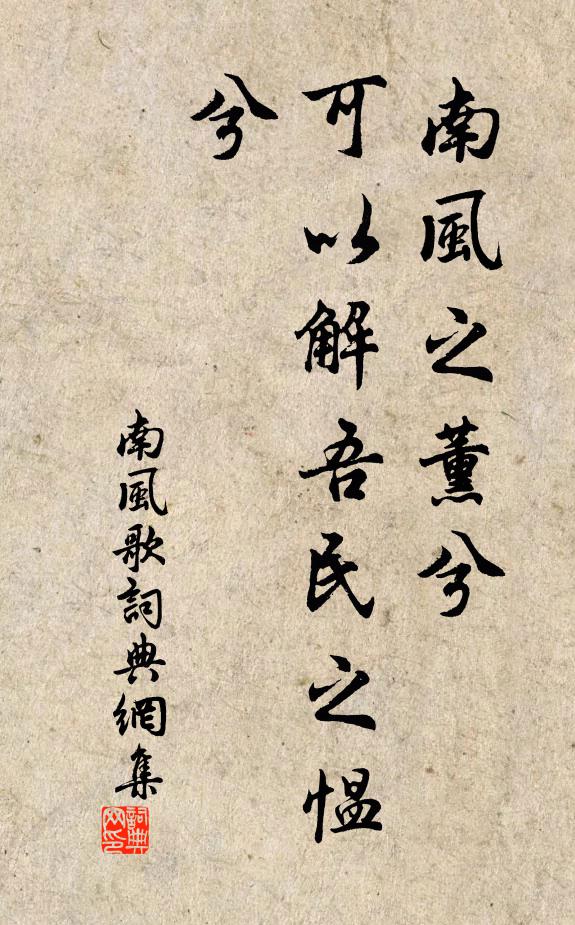 南風之薰兮
可以解吾民之愠
兮
南風歌詞典網集
詞典
网印